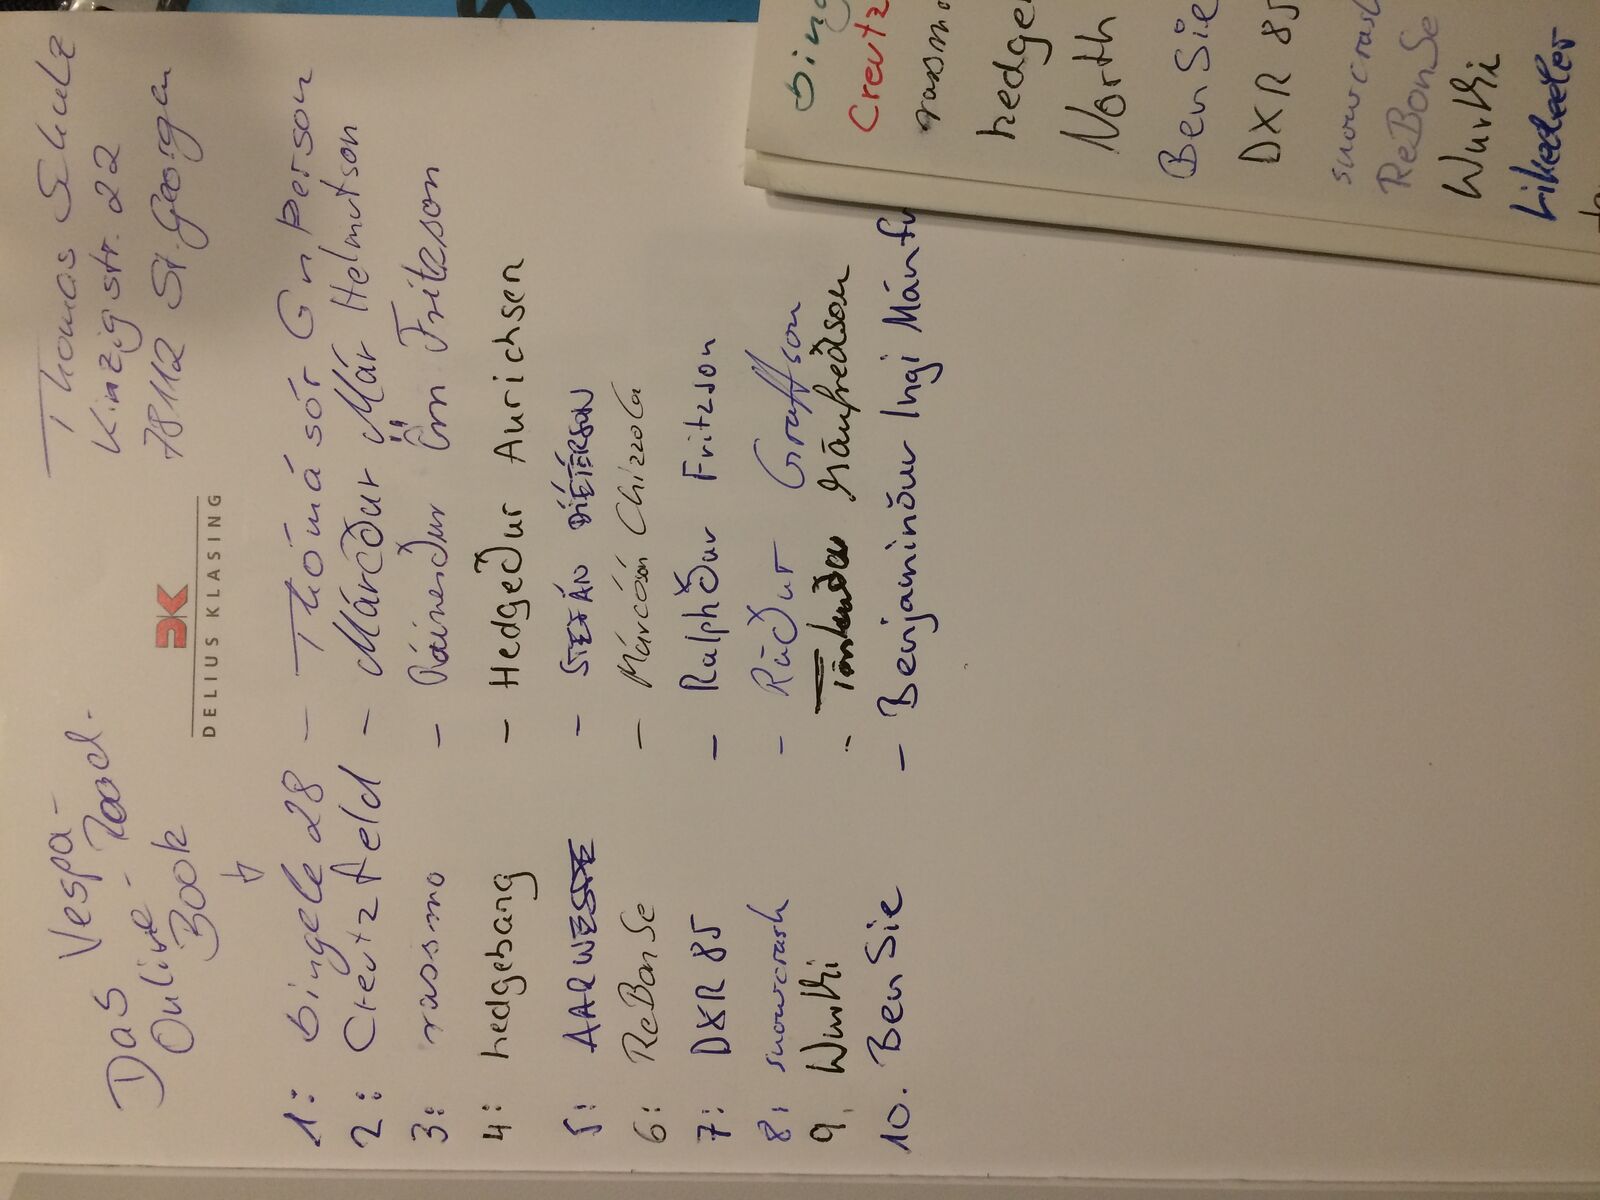 Das Vespa-
Onlive- Road-
Book
Thomas Schulz
Kinzigstr. 22
78112 St. Georgen
DK
DELIUS KLASING
1: bingele 28 - Thómásór Gn Person
2: Creutzfeld - Máreður Már Helmutson
3: rassmo - Ráinerður Örn Fritzson
4: hedgebang - Hedgeður Aurichsen
5: AARWESTE - STEFÁN DÍÉTÉRSON
6: ReBonSe - Márcósán Chizzola
7: DXR 85 - Ralphður Fritzson
8: snowcrash - Ráður Graffson
9. Wurthi - Mánfreðson
10. BenSie - Benjaminður Ingi Mánf
bing
Creutz
rassmo
hedge
North
BenSie
DXR 85
snowcrash
ReBonSe
Wurthi
Likedeler